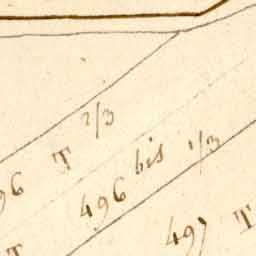 96 T 2/3
496 bis 1/3
497 T
T